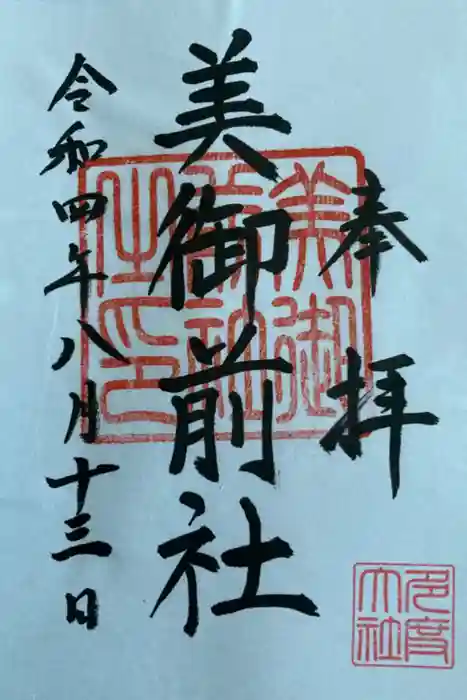 奉拝
美御前社
令和四年八月十三日
美御
前社
之印
多度
大社